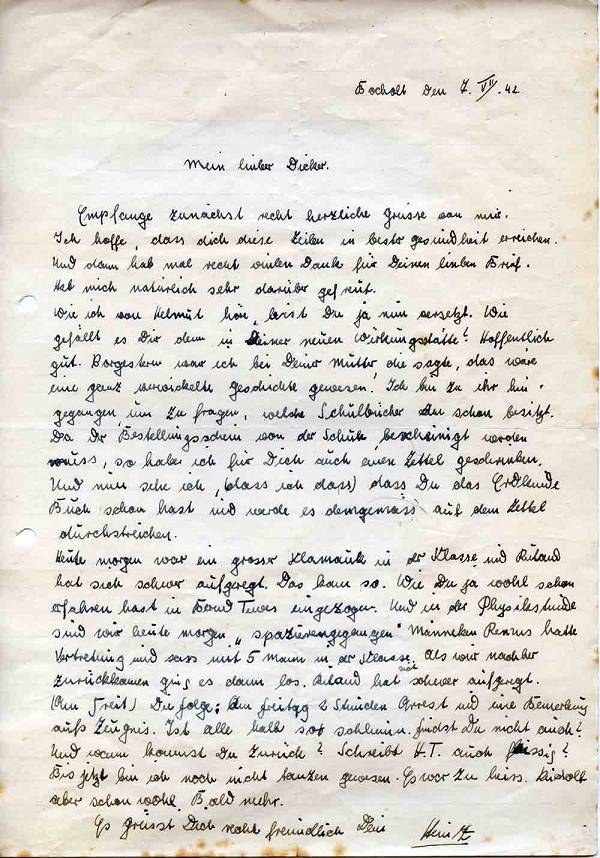 Bocholt den 7. VII. 42
Mein lieber Dicker.
Empfange zunächst recht herzliche Grüsse von mir.
Ich hoffe, dass dich diese Zeilen in bester gesundheit erreichen.
Und dann hab mal recht vielen Dank für Deinen lieben Brief.
Hab mich natürlich sehr darüber gefreut.
Wie ich von Helmut hör, bist Du ja nun versetzt. Wie
gefällt es Dir denn in Deiner neuen Wirkungsstätte? Hoffentlich
gut. Vorgestern war ich bei Deiner Mutter die sagte, das wäre
eine ganz verwickelte geschichte gewesen. Ich bin zu ihr hin
gegangen, um zu fragen, welche Schulbücher du schon besitzt.
Da der Bestellungsschein von der Schule bescheinigt werden
muss, so habe ich für Dich auch einen Zettel geschrieben.
Und nun sehe ich, (dass ich dass) dass Du das Erdkunde
Buch schon hast und werde es demgemäss auf dem Zettel
durchstreichen.
Heute morgen war ein grosser Klamauk in der Klasse und Ruland
hat sich schwer aufgeregt. Das kam so. Wie Du ja wohl schon
erfahren hast ist Bernd Tewes eingezogen. Und in der Physikstunde
sind wir heute morgen „spazierengegangen" Männeken Renus hatte
Vertretung und sass mit 5 Mann in der Klasse. Als wir nachher
zurückkamen ging es dann los. Ruland hat sich schwer aufgeregt.
(Am Freit) Die folge: Am freitag 2 Stunden Arrest und eine Bemerkung
aufs Zeugnis. Ist alle halb so schlimm. findst Du nicht auch?
Und wann kommst Du zurück? Schreibt H.T. auch fleissig?
Bis jetzt bin ich noch nicht tanzen gewesen. Es war zu heiss.
aber schon wohl. Bald mehr.
Es grüsst Dich recht freundlich Dein